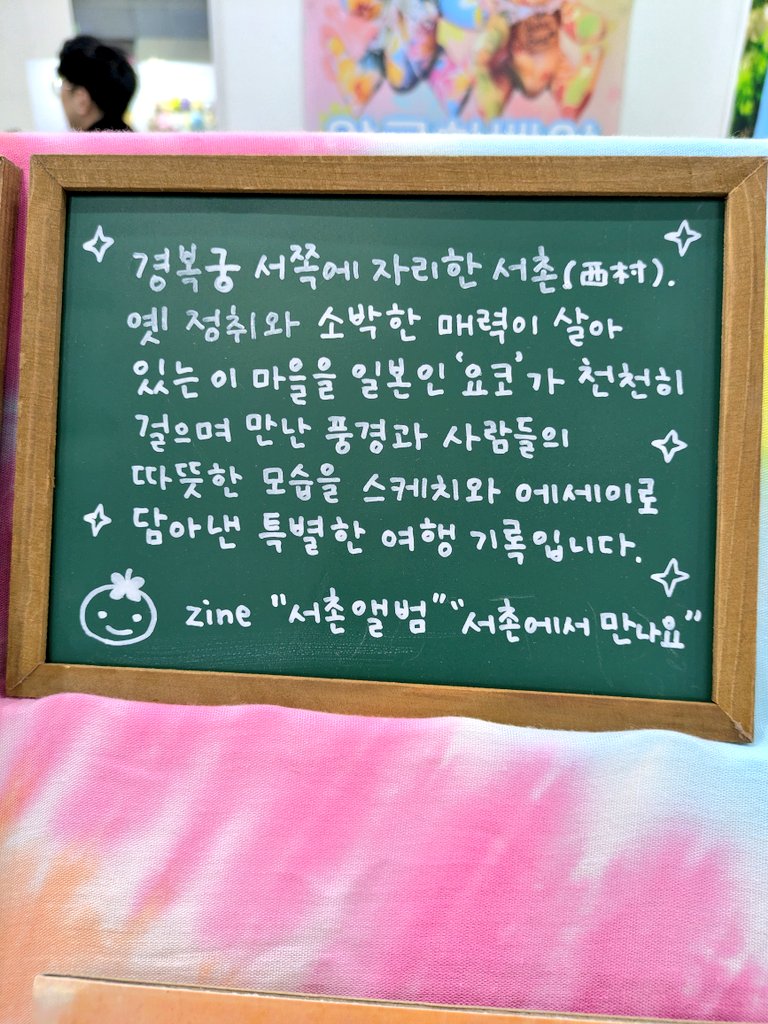 경복궁 서쪽에 자리한 서촌(西村).
옛 정취와 소박한 매력이 살아
있는 이 마을을 일본인 '요코'가 천천히
걸으며 만난 풍경과 사람들의
따뜻한 모습을 스케치와 에세이로
담아낸 특별한 여행 기록입니다.
zine "서촌앨범" "서촌에서 만나요"